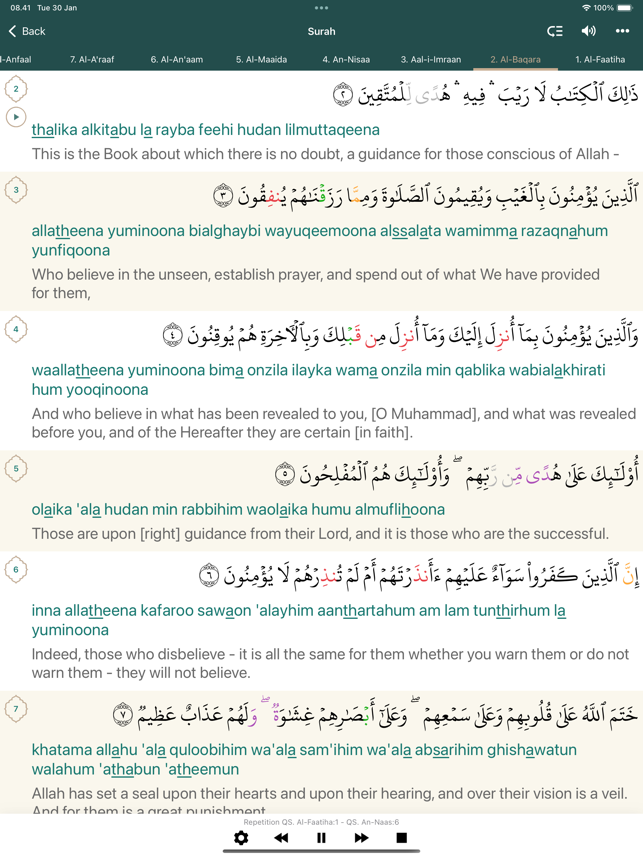 08.41 Tue 30 Jan
100%
Back
Surah
l-Anfaal 7. Al-A'raaf 6. Al-An'aam 5. Al-Maaida 4. An-Nisaa 3. Aal-i-Imraan 2. Al-Baqara 1. Al-Faatiha
2
ذَٰلِكَ ٱلْكِتَٰبُ لَا رَيْبَ ۛ فِيهِ ۛ هُدًى لِّلْمُتَّقِينَ ٢
thalika alkitabu la rayba feehi hudan lilmuttaqeena
This is the Book about which there is no doubt, a guidance for those conscious of Allah -
3
ٱلَّذِينَ يُؤْمِنُونَ بِٱلْغَيْبِ وَيُقِيمُونَ ٱلصَّلَوٰةَ وَمِمَّا رَزَقْنَٰهُمْ يُنفِقُونَ ٣
allatheena yuminoona bialghaybi wayuqeemoona alssalata wamimma razaqnahum
yunfiqoona
Who believe in the unseen, establish prayer, and spend out of what We have provided
for them,
4
وَٱلَّذِينَ يُؤْمِنُونَ بِمَآ أُنزِلَ إِلَيْكَ وَمَآ أُنزِلَ مِن قَبْلِكَ وَبِٱلْءَاخِرَةِ هُمْ يُوقِنُونَ ٤
waallatheena yuminoona bima onzila ilayka wama onzila min qablika wabialakhirati
hum yooqinoona
And who believe in what has been revealed to you, [O Muhammad], and what was revealed
before you, and of the Hereafter they are certain [in faith].
5
أُو۟لَٰٓئِكَ عَلَىٰ هُدًى مِّن رَّبِّهِمْ ۖ وَأُو۟لَٰٓئِكَ هُمُ ٱلْمُفْلِحُونَ ٥
olaika 'ala hudan min rabbihim waolaika humu almuflihoona
Those are upon [right] guidance from their Lord, and it is those who are the successful.
6
إِنَّ ٱلَّذِينَ كَفَرُوا۟ سَوَآءٌ عَلَيْهِمْ ءَأَنذَرْتَهُمْ أَمْ لَمْ تُنذِرْهُمْ لَا يُؤْمِنُونَ ٦
inna allatheena kafaroo sawaon 'alayhim aanthartahum am lam tunthirhum la
yuminoona
Indeed, those who disbelieve - it is all the same for them whether you warn them or do not
warn them - they will not believe.
7
خَتَمَ ٱللَّهُ عَلَىٰ قُلُوبِهِمْ وَعَلَىٰ سَمْعِهِمْ ۖ وَعَلَىٰٓ أَبْصَٰرِهِمْ غِشَٰوَةٌ ۖ وَلَهُمْ عَذَابٌ عَظِيمٌ ٧
khatama allahu 'ala quloobihim wa'ala sam'ihim wa'ala absarihim ghishawatun
walahum 'athabun 'atheemun
Allah has set a seal upon their hearts and upon their hearing, and over their vision is a veil.
And for them is a great punishment
Repetition QS. Al-Faatiha:1 - QS. An-Naas:6